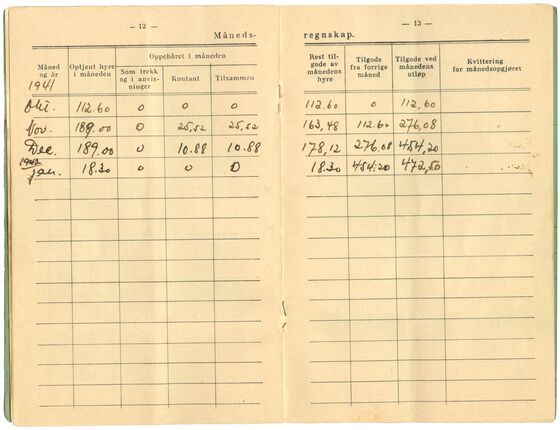 — 12 —
Måneds-
Måned og år
Optjent hyre i måneden
Oppebåret i måneden
Som trekk og i anvisninger
Kontant
Tilsammen
1941
Okt. 112.60 0 0 0
Nov. 189.00 0 25,52 25,52
Dec. 189.00 0 10.88 10.88
jan. 18.30 0 0 0
— 13 —
regnskap.
Rest tilgode av månedens hyre
Tilgode fra forrige måned
Tilgode ved månedens utløp
Kvittering for månedsopgjøret
112.60 0 112,60
163,48 112.60 276,08
178,12 276.08 454,20
18.30 454.20 472,50